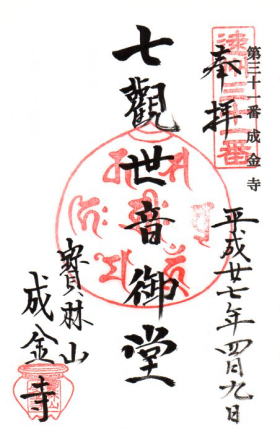 第三十一番 成金寺
奉拝
平成廿七年四月九日
七觀世音御堂
寳林山
成金寺